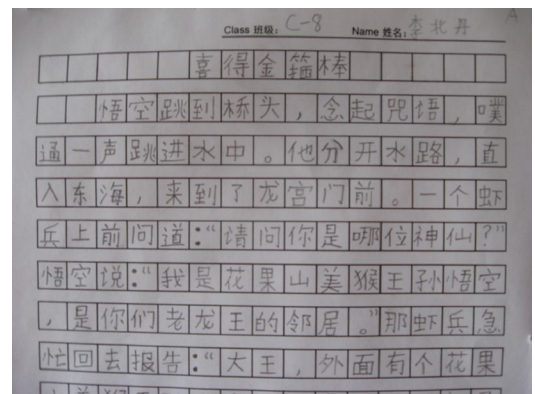 A
Class 班级：C-8 Name 姓名：李北丹
喜得金箍棒
悟空跳到桥头，念起咒语，噗
通一声跳进水中。他分开水路，直
入东海，来到了龙宫门前。一个虾
兵上前问道：“请问你是哪位神仙？”
悟空说：“我是花果山美猴王孙悟空
，是你们老龙王的邻居。”那虾兵急
忙回去报告：“大王，外面有个花果